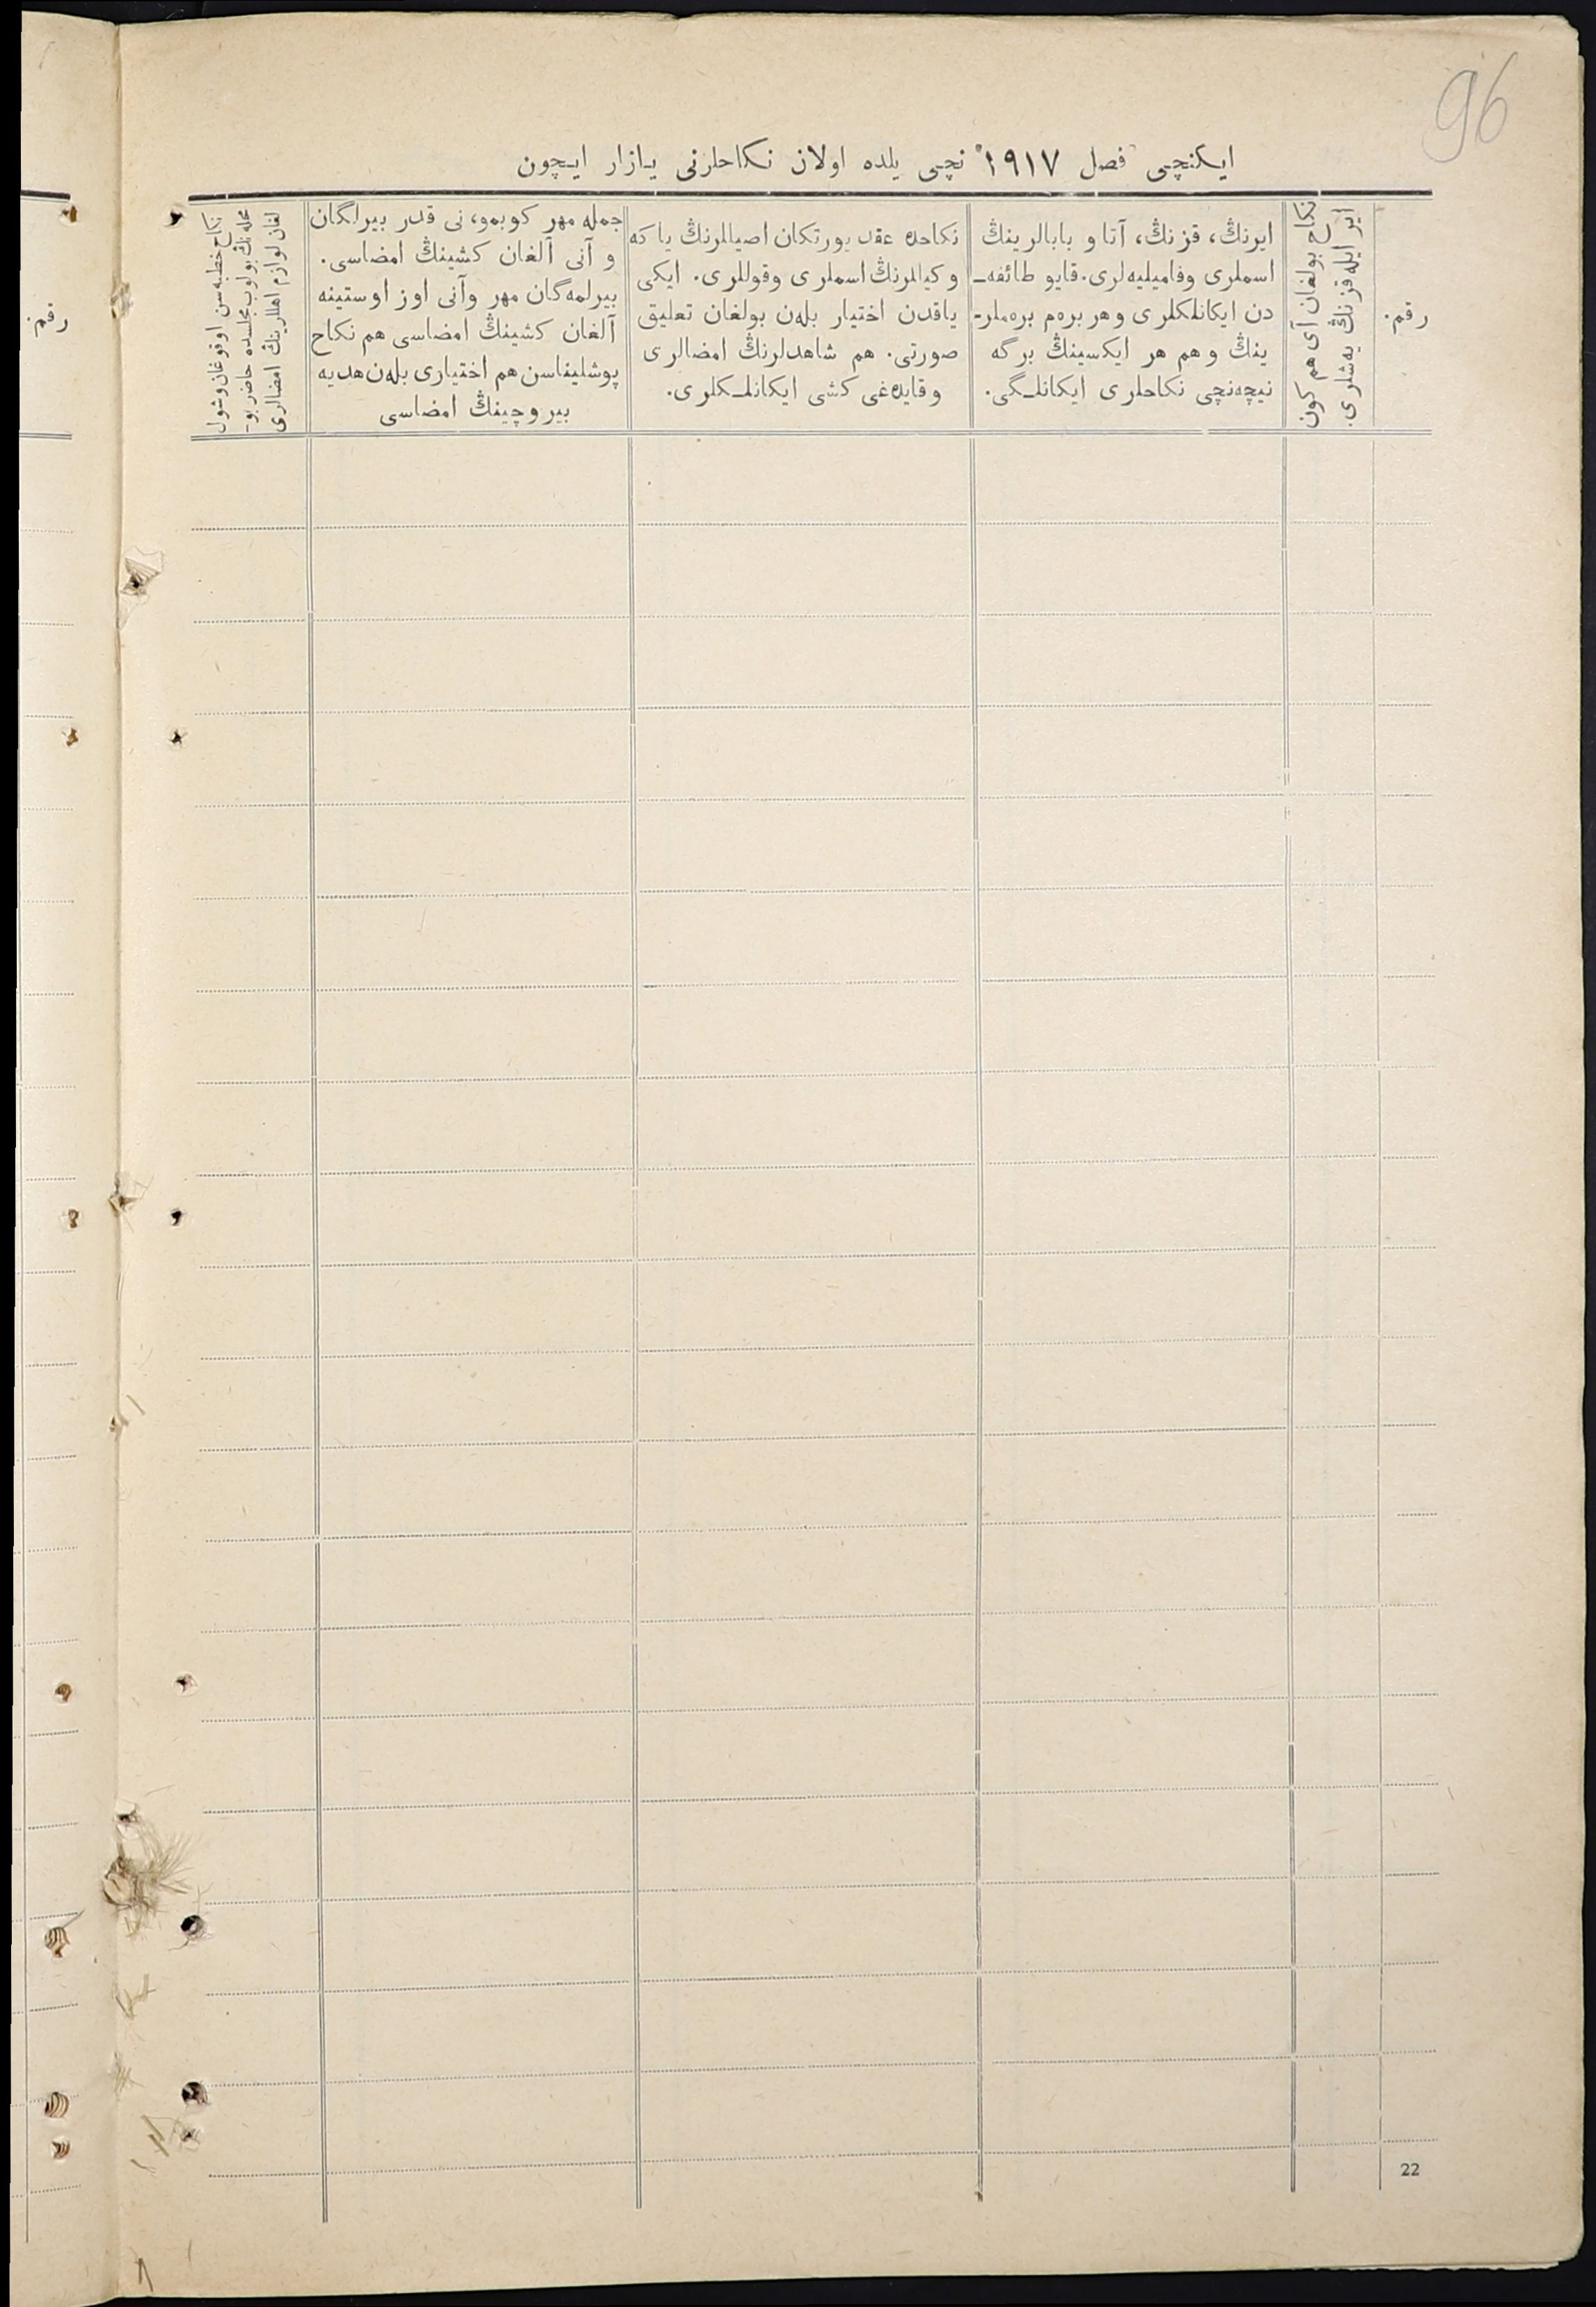 96
ایکنچی فصل ۱۹۱۷ نچی یلده اولان نکاحلرنی یازار ایچون
رقم.
نکاح بولغان آی هم کون
ایر ایله قزنڭ یه‌شلری.
ایرنڭ، قزنڭ، آتا و بابالرینڭ
اسملری وفامیلیه‌لری. قایو طائفه‌ـ
دن ایکانلکلری و هر بره‌م بره‌ملر-
ینڭ و هم هر ایکسینڭ برگه
نیچه‌نچی نکاحلری ایکانلـگی.
نکاحده عقد یورتکان اصیللرنڭ یاکه
وکیللرنڭ اسملری وقوللری. ایکی
یاقدن اختیار بله‌ن بولغان تعلیق
صورتی. هم شاهدلرنڭ امضالری
وقایده‌غی کشی ایکانلـکلری.
جمله مهر کوبمو، نی قدر بیرلگان
و آنی آلغان کشینڭ امضاسی.
بیرلمه‌گان مهر وآنی اوز اوستینه
آلغان کشینڭ امضاسی هم نکاح
پوشلیناسن هم اختیاری بله‌ن هدیه
بیروچینڭ امضاسی
نکاح خطبه‌سن اوقوغان وشول
محله‌نڭ بولوب مجلسده حاضر بو-
لغان لوازم اهللرینڭ امضالری
رقم.
22